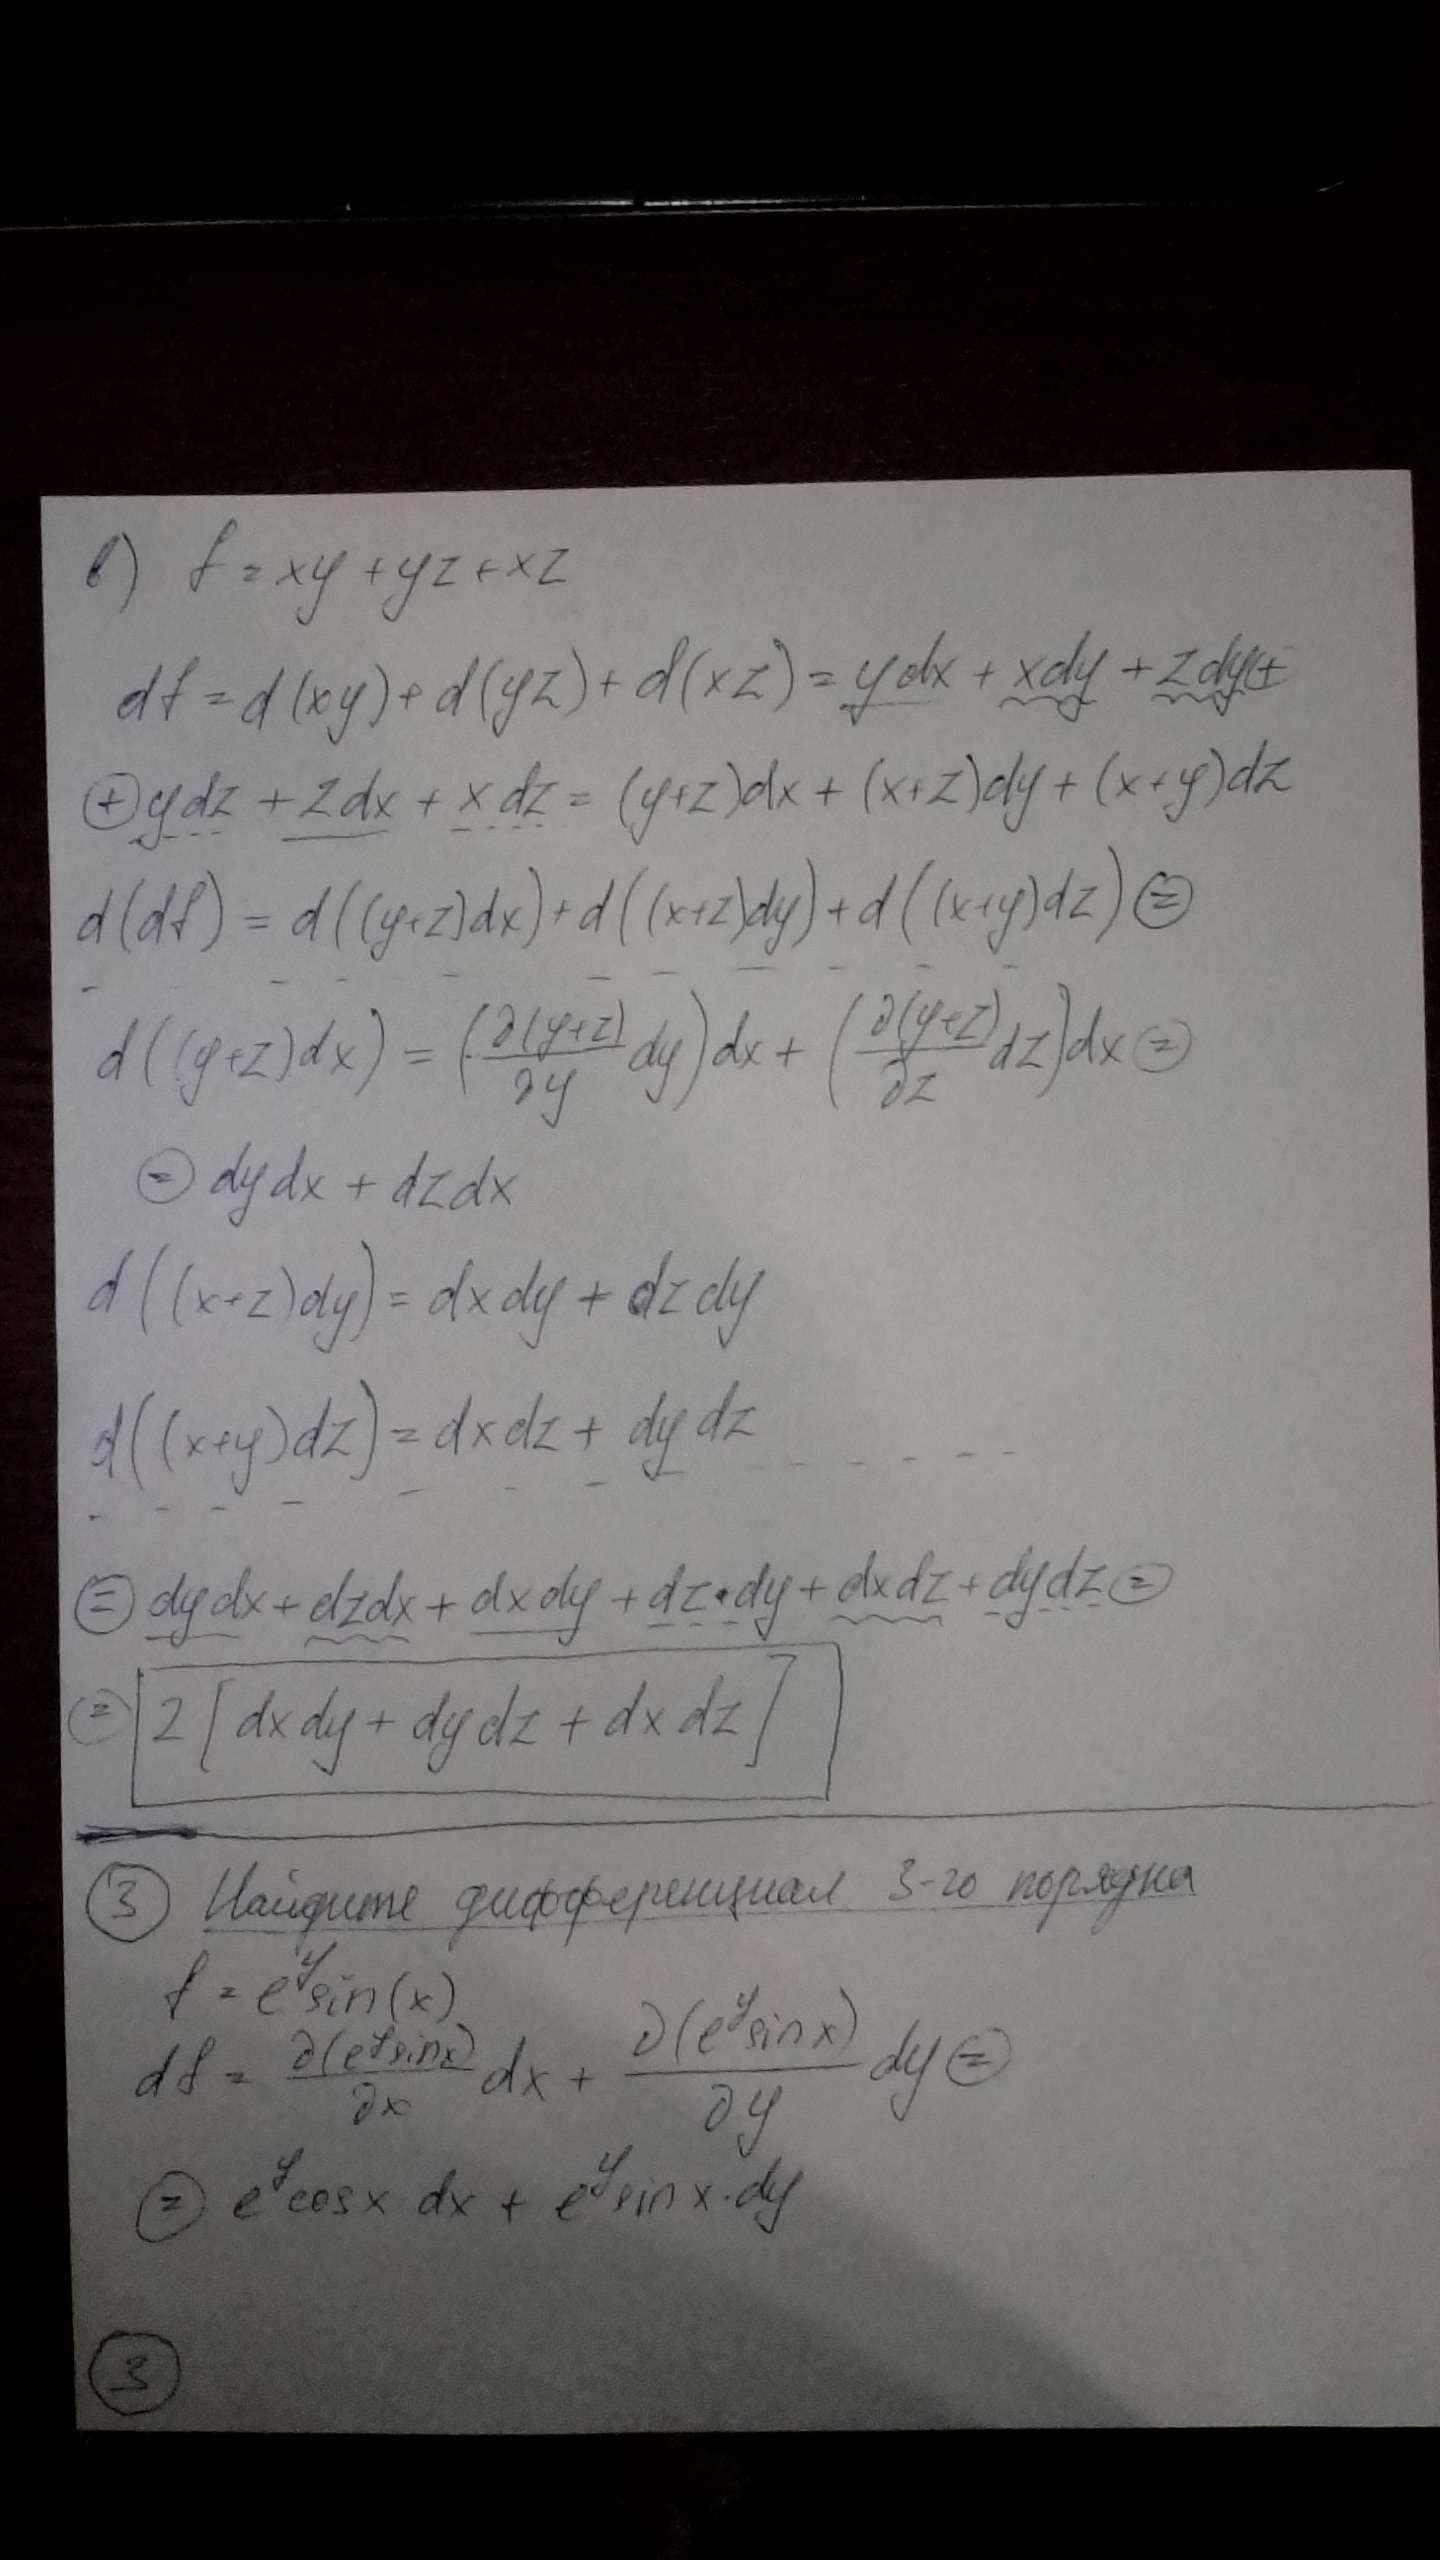 в) f = xy + yz + xz
df = d(xy) + d(yz) + d(xz) = ydx + xdy + zdy ⊕
⊕ ydz + zdx + xdz = (y+z)dx + (x+z)dy + (x+y)dz
d(df) = d((y+z)dx) + d((x+z)dy) + d((x+y)dz) ⊜
d((y+z)dx) = (∂(y+z)/∂y dy)dx + (∂(y+z)/∂z dz)dx ⊜
⊜ dydx + dzdx
d((x+z)dy) = dxdy + dzdy
d((x+y)dz) = dxdz + dydz
⊜ dydx + dzdx + dxdy + dz·dy + dxdz + dydz ⊜
⊜ 2[dxdy + dydz + dxdz]
③ Найдите дифференциал 3-го порядка
f = e^y sin(x)
df = ∂(e^y sinx)/∂x dx + ∂(e^y sinx)/∂y dy ⊜
⊜ e^y cosx dx + e^y sinx·dy
③